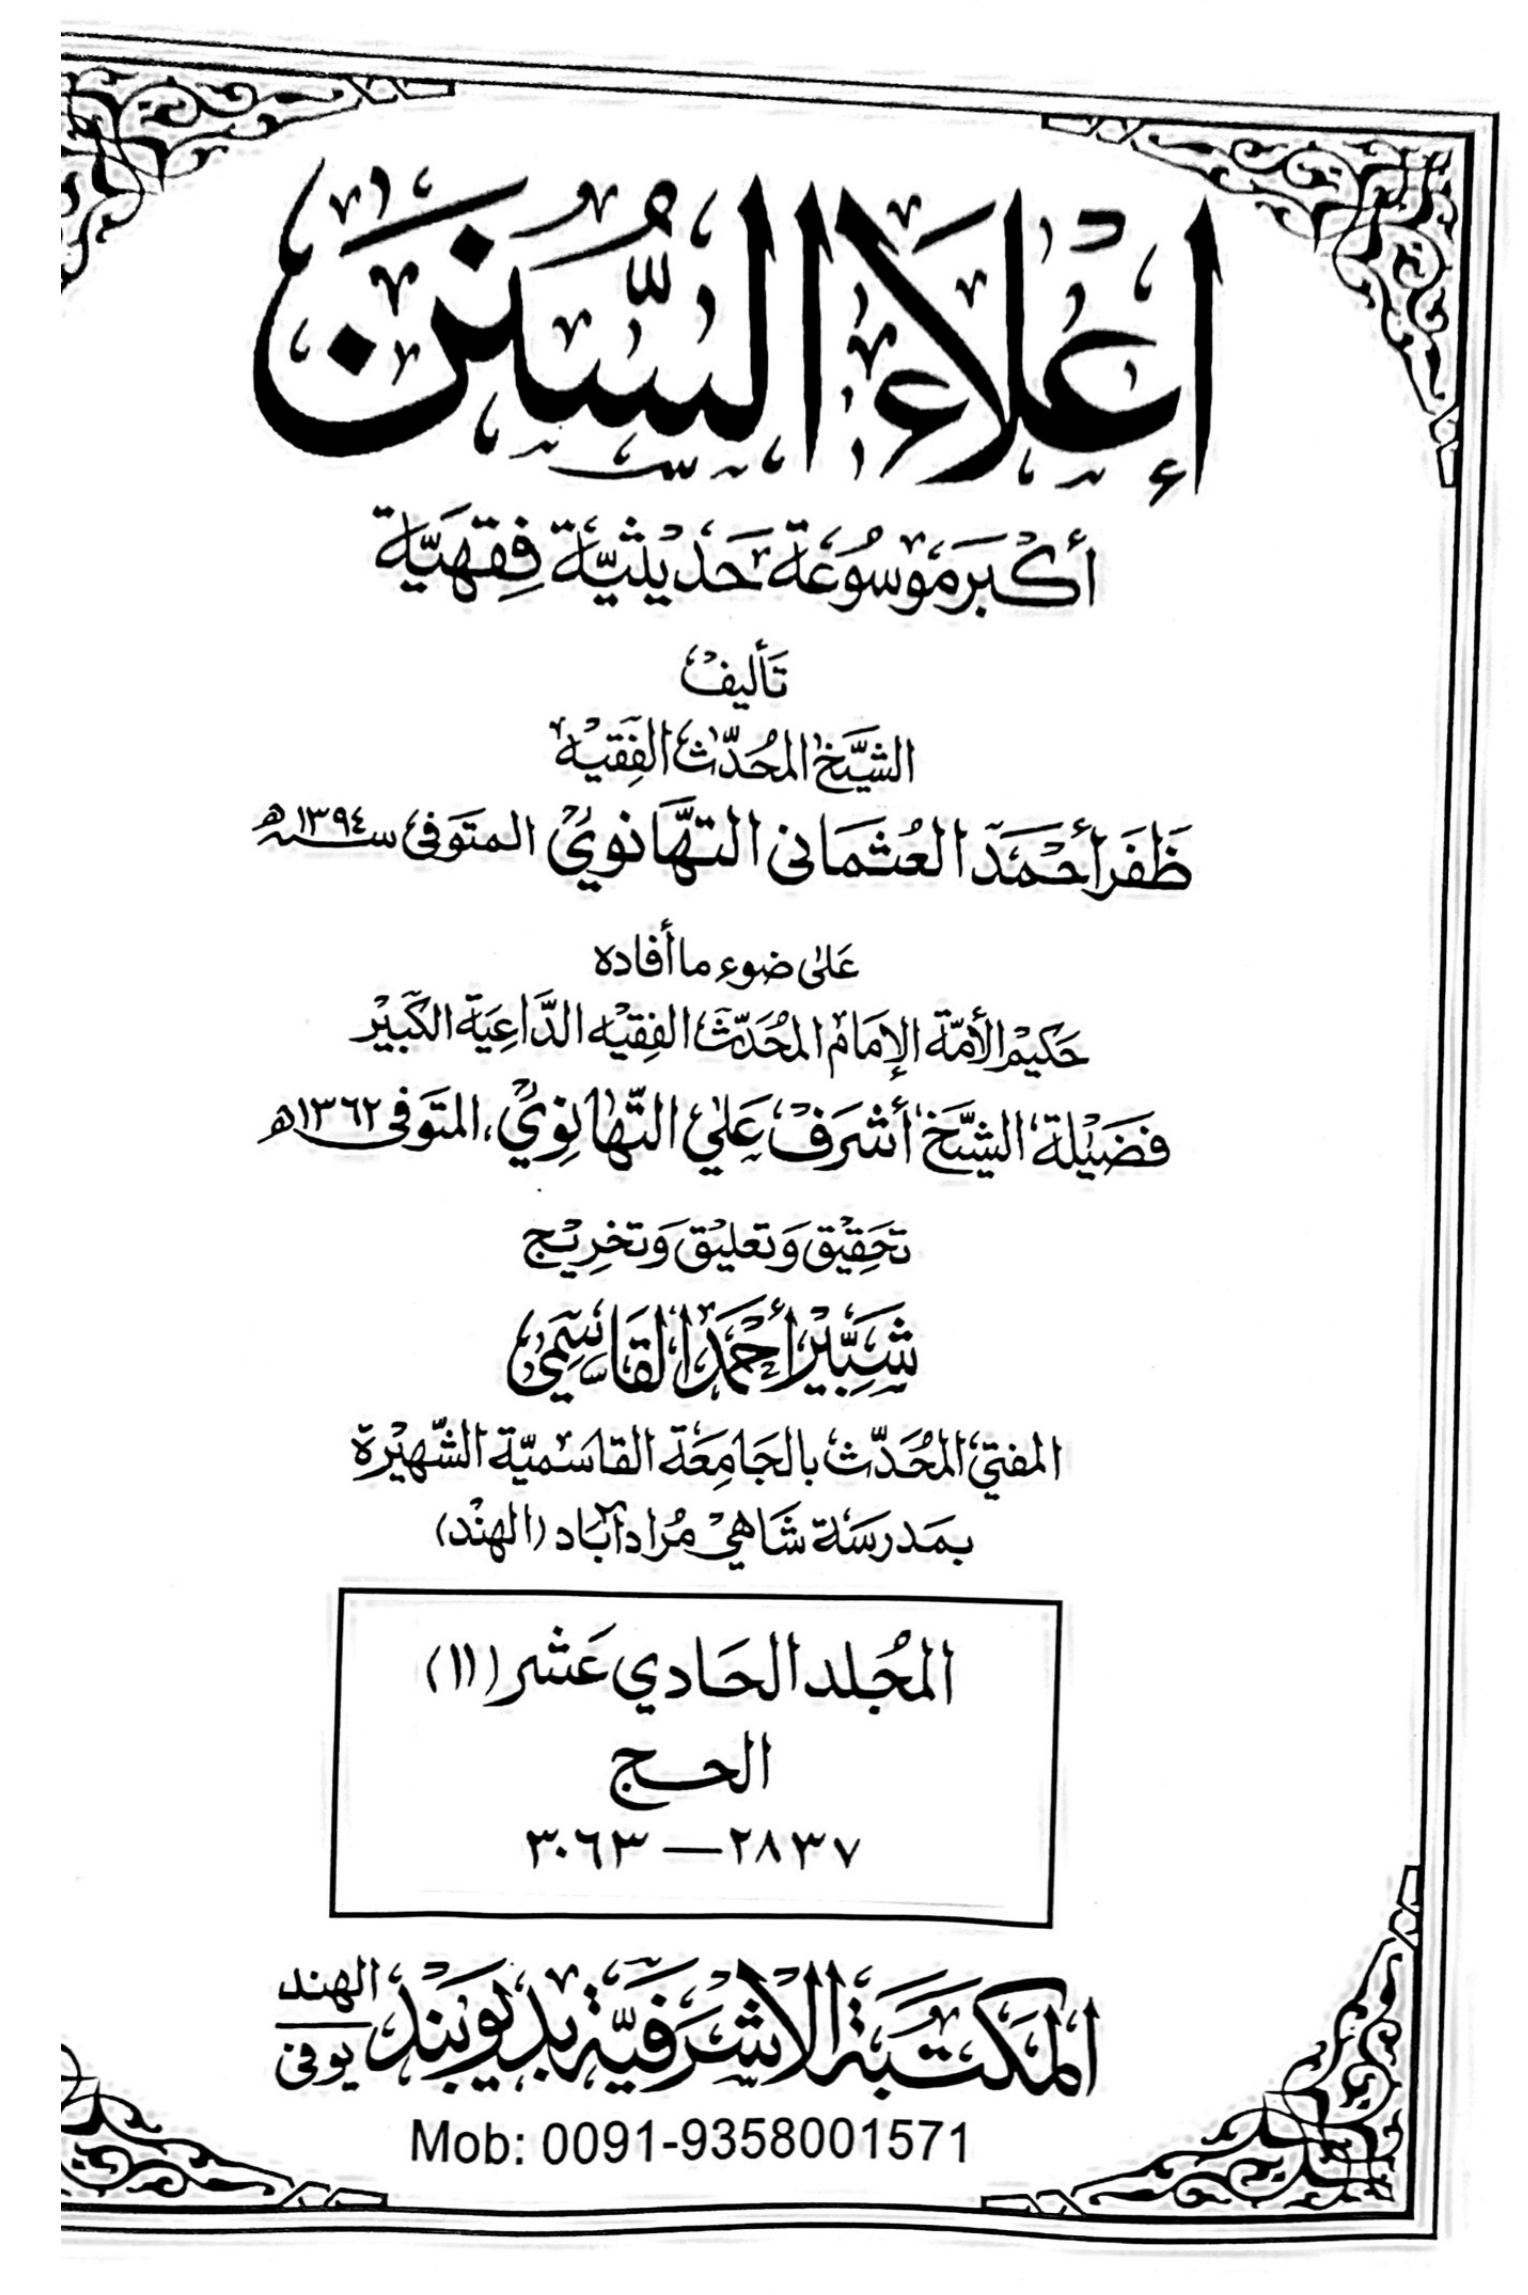 إِعْلَاءُ السُّنَن
أكبر موسوعة حديثية فقهية
تأليف
الشيخ المحدث الفقيه
ظفر أحمد العثماني التهانوي المتوفى سنة ١٣٩٤ھ
على ضوء ما أفاده
حكيم الأمة الإمام المحدث الفقيه الداعية الكبير
فضيلة الشيخ أشرف علي التهانوي، المتوفى ١٣٦٢ھ
تحقيق وتعليق وتخريج
شبير أحمد القاسمي
المفتي المحدث بالجامعة القاسمية الشهيرة
بمدرسة شاهي مرادآباد (الهند)
المجلد الحادي عشر (١١)
الحج
٢٨٣٧ — ٣٠٦٣
المكتبة الاشرفية بديوبند الهند
يوفي
Mob: 0091-9358001571